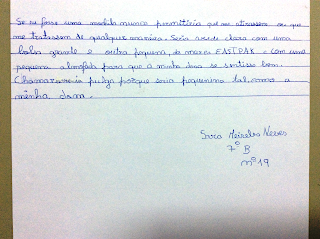 Se eu fosse uma mochila nunca permitiria que me atirassem ou que
me tratassem de qualquer maneira. Seria verde clara com uma
bolsa grande e outra pequena, da marca EASTPAK e com uma
pequena almofada para que a minha dona se sentisse bem.
Chamar-me-ia pulga porque seria pequenina tal como a
minha dona.
Sara Meireles Neves
7º B
nº 19